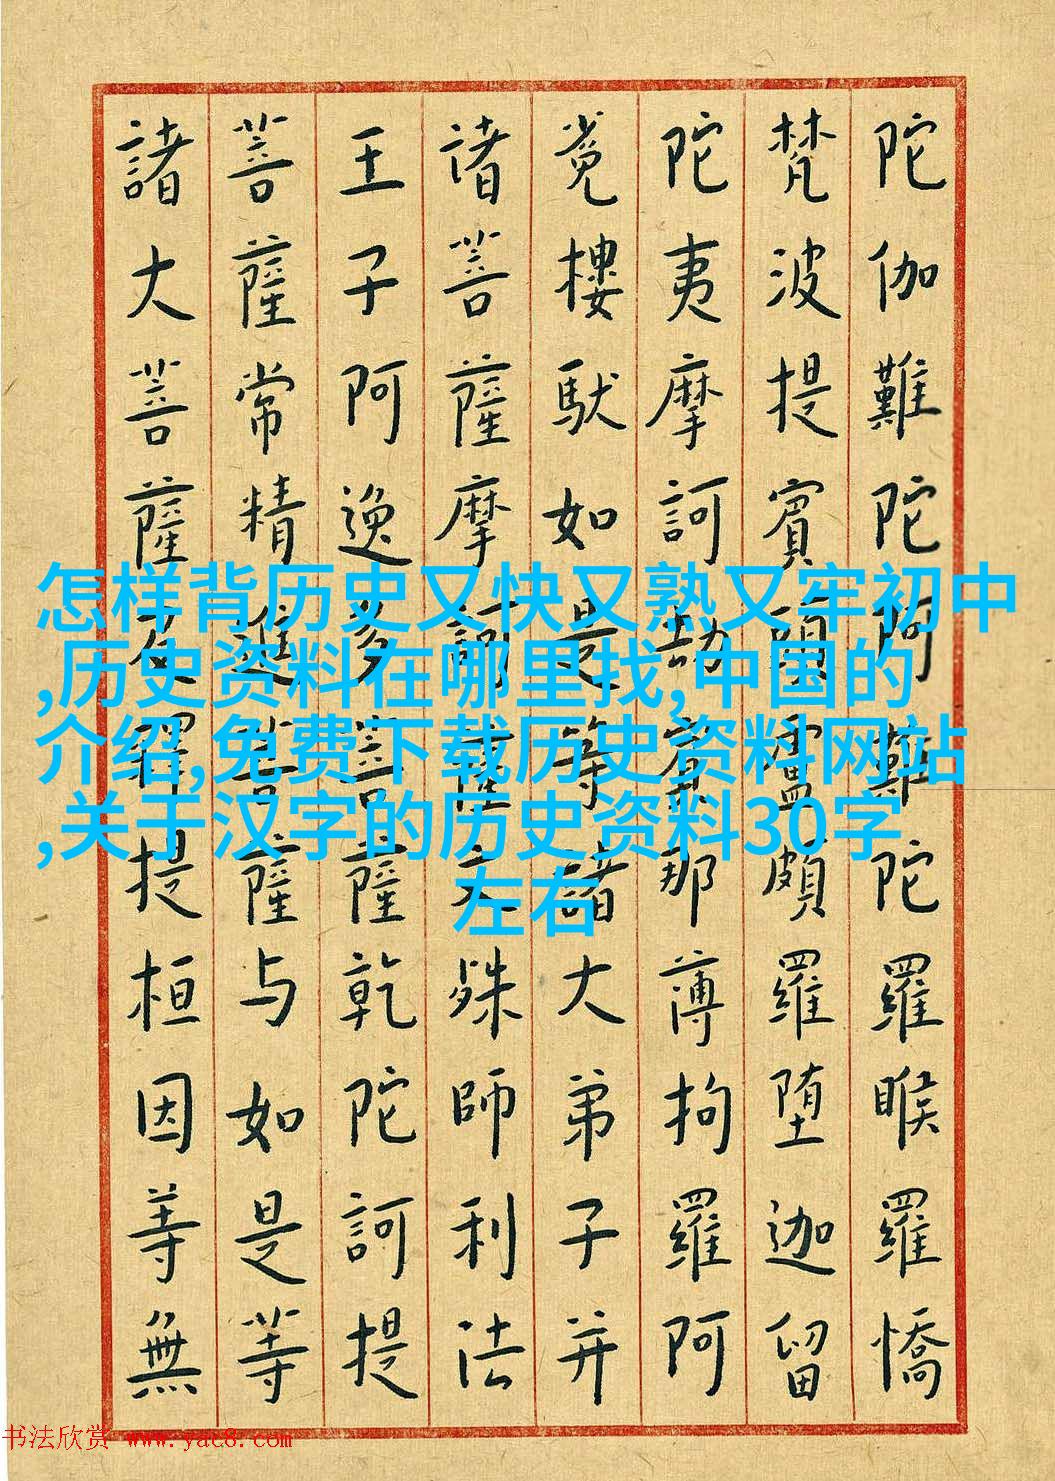 陀伽難陀阿難陀羅睺羅憍
梵波提賓頭盧頗羅堕迦留
陀夷摩訶劫賓那薄拘羅阿
樓馱如是等諸大弟子并
诸菩薩摩訶薩文殊師利法
王子阿逸多菩薩乾陀訶提
菩薩常精進菩薩与如是等
諸大菩薩及釋提桓因等無
怎样背历史又快又熟又牢初中
,历史资料在哪里找,中国的
介绍,免费下载历史资料网站
,关于汉字的历史资料30字
左右
书法欣赏 www.yac8.com